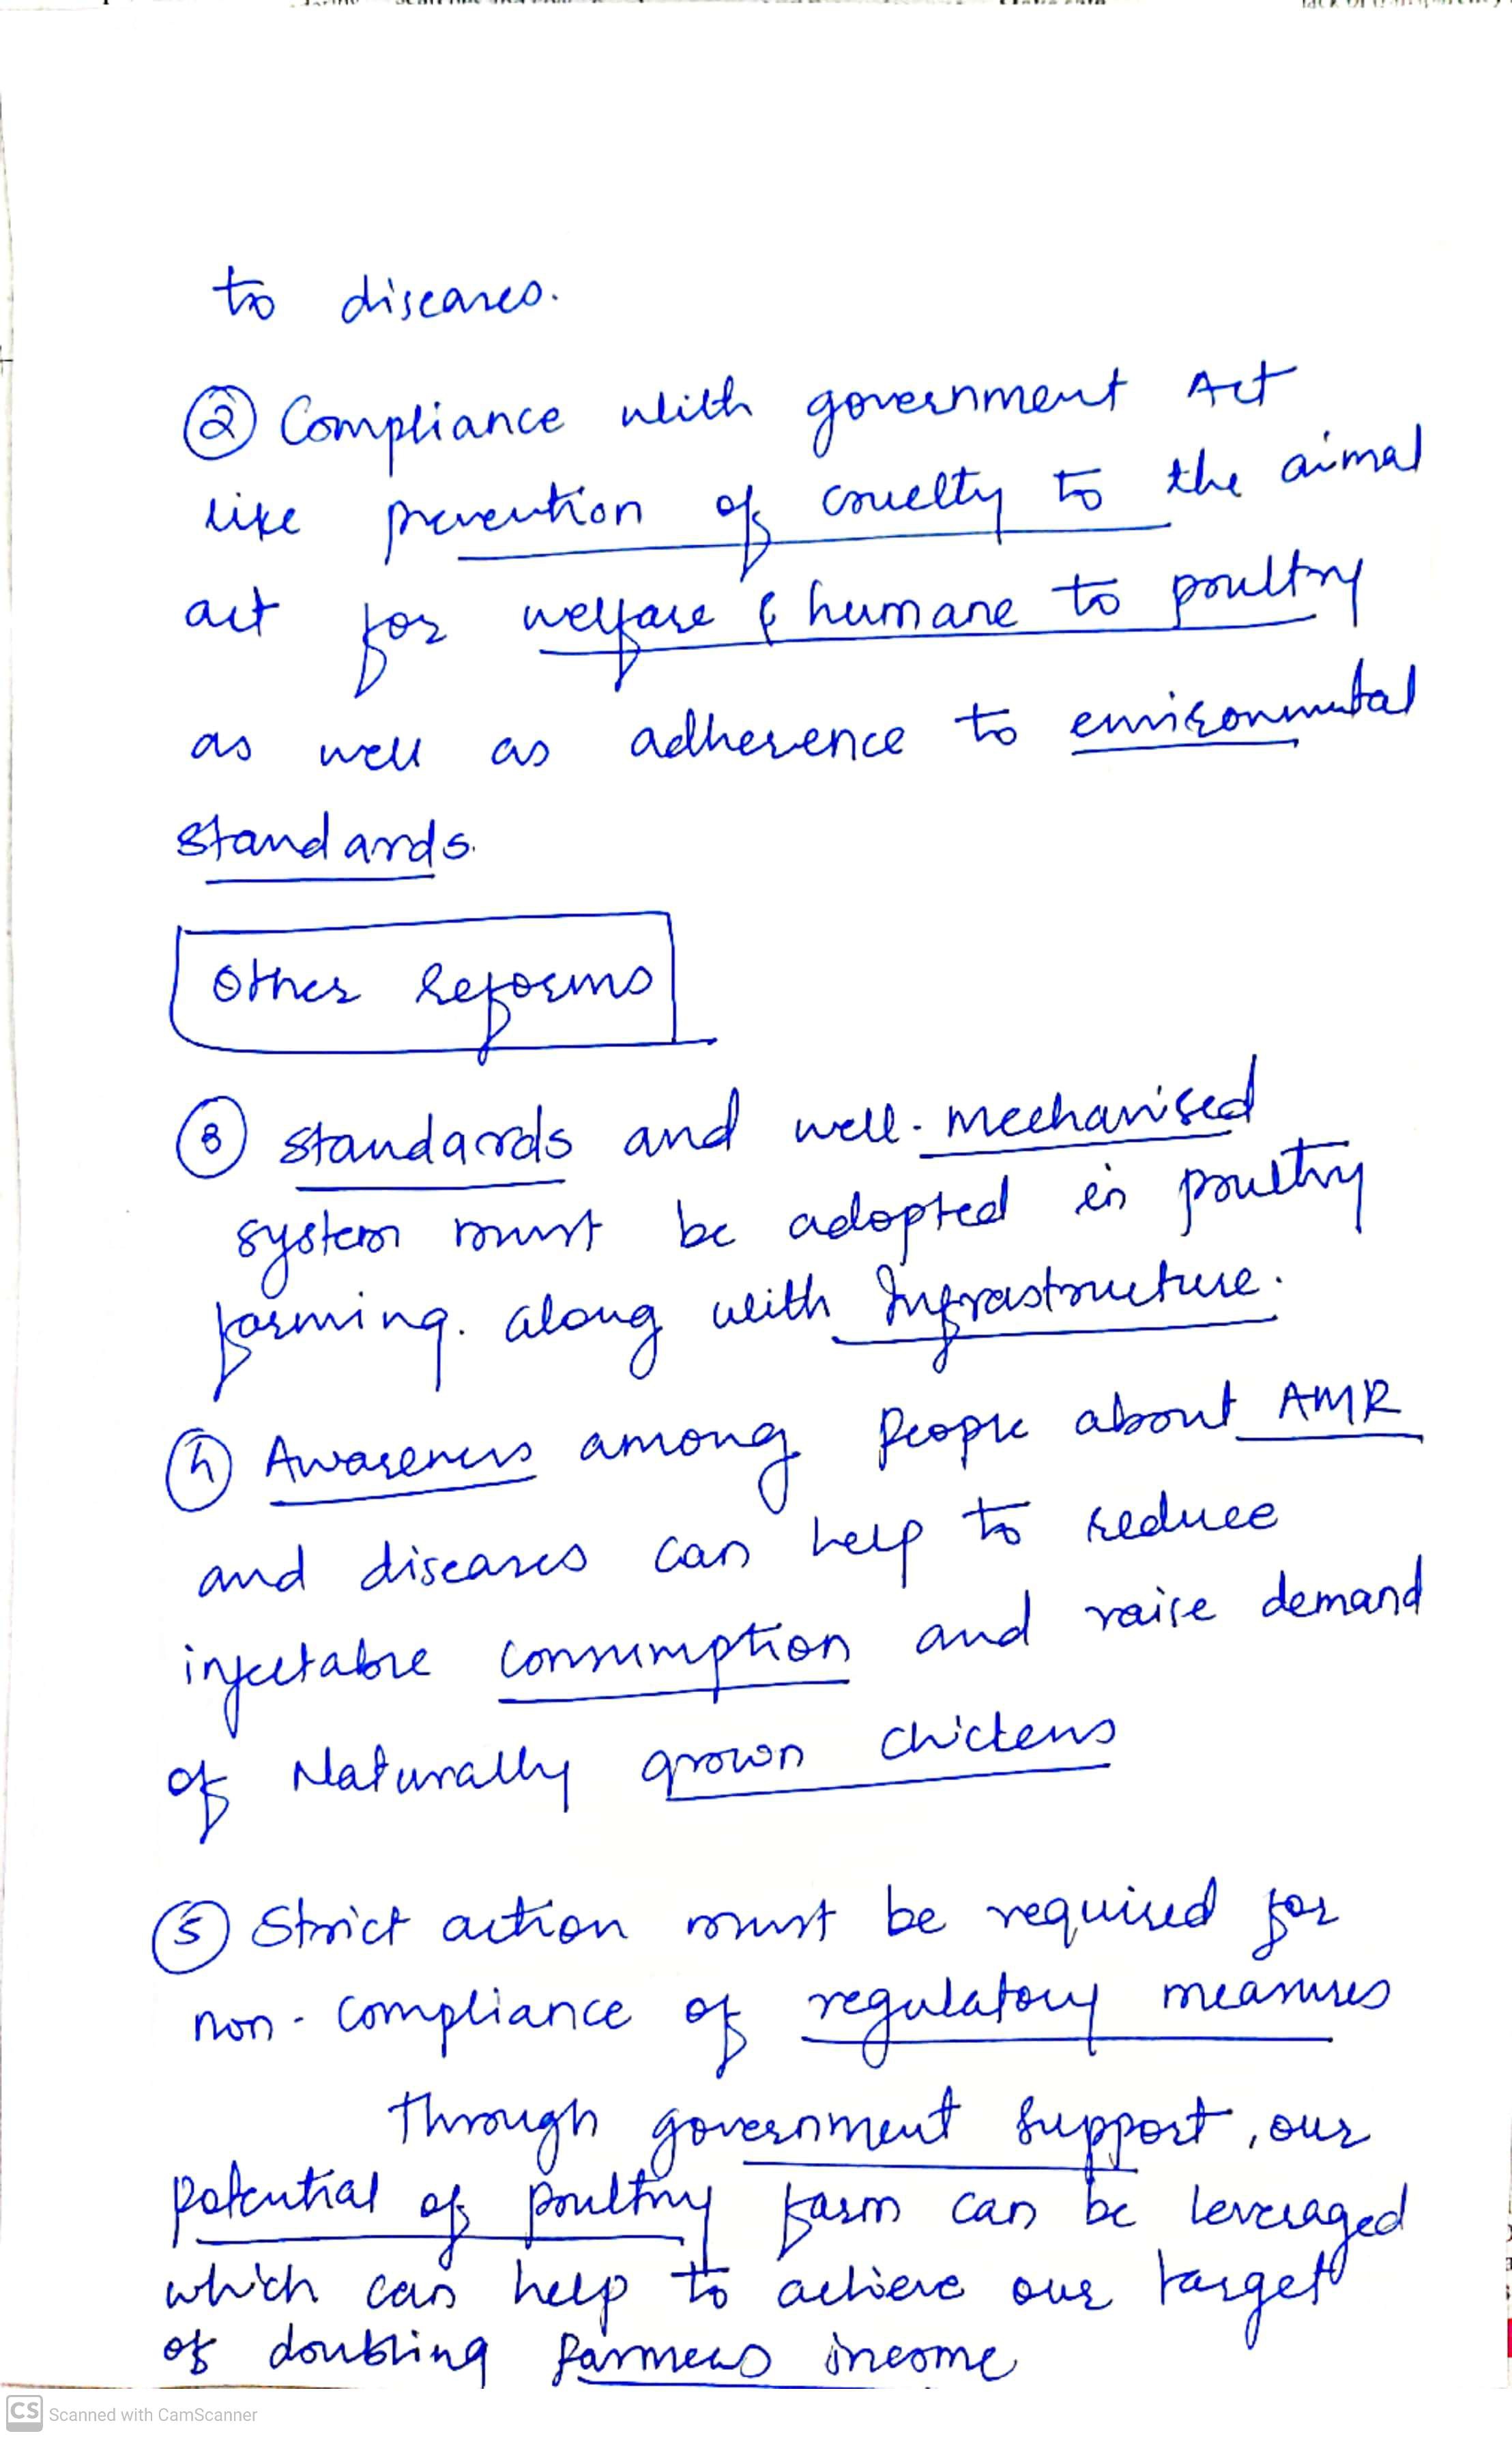 to diseases.
② Compliance with government Act
like prevention of cruelty to the aimal
act for welfare & humane to poultry
as well as adherence to environmental
standards.
Other Reforms
③ standards and well-mechanised
system must be adopted in poultry
farming. along with Infrastructure.
④ Awareness among people about AMR
and diseases can help to reduce
injectable consumption and raise demand
of Naturally grown chickens
⑤ Strict action must be required for
non-compliance of regulatory measures
Through government support, our
potential of poultry farm can be leveraged
which can help to achieve our target
of doubling farmers income
CS Scanned with CamScanner